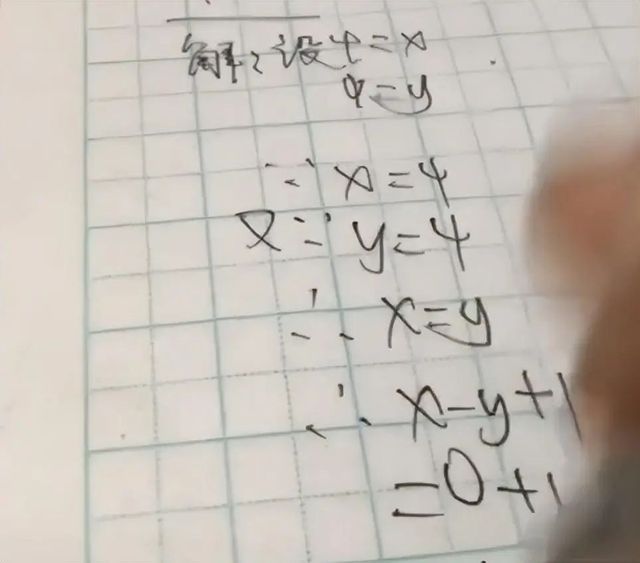 解：设4=x
4=y
∵ x=4
又∵ y=4
∴ x=y
∴ x-y+1
=0+1